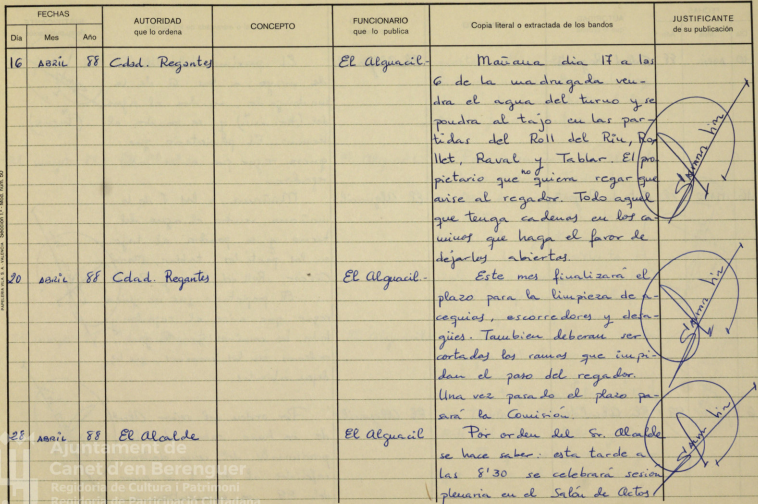 FECHAS
Día Mes Año
AUTORIDAD
que lo ordena
CONCEPTO
FUNCIONARIO
que lo publica
Copia literal o extractada de los bandos
JUSTIFICANTE
de su publicación
16 ABRIL 88 Cdad. Regantes El Alguacil.-
Mañana dia 17 a las
6 de la madrugada ven-
dra el agua del turno y se
pondra al tajo en las par-
tidas del Roll del Riu, Ro
llet, Raval y Tablar. El pro
pietario que no quiera regar que
avise al regador. Todo aquel
que tenga cadenas en los ca-
minos que haga el favor de
dejarlos abiertos.
20 ABRIL 88 Cdad. Regantes El Alguacil.-
Este mes finalizará el
plazo para la limpieza de a-
cequias, escorredores y desa-
gües. Tambien deberan ser
cortadas las ramas que impi-
dan el paso del regador.
Una vez pasado el plazo pa-
sará la Comisión.
28 ABRIL 88 El Alcalde El Alguacil
Por orden del Sr. Alcalde
se hace saber: esta tarde a
las 8'30 se celebrará sesión
plenaria en el Salón de Actos.
Ajuntament de
Canet d'en Berenguer
Regidoria de Cultura i Patrimoni
Regidoria de Participació Ciutadana